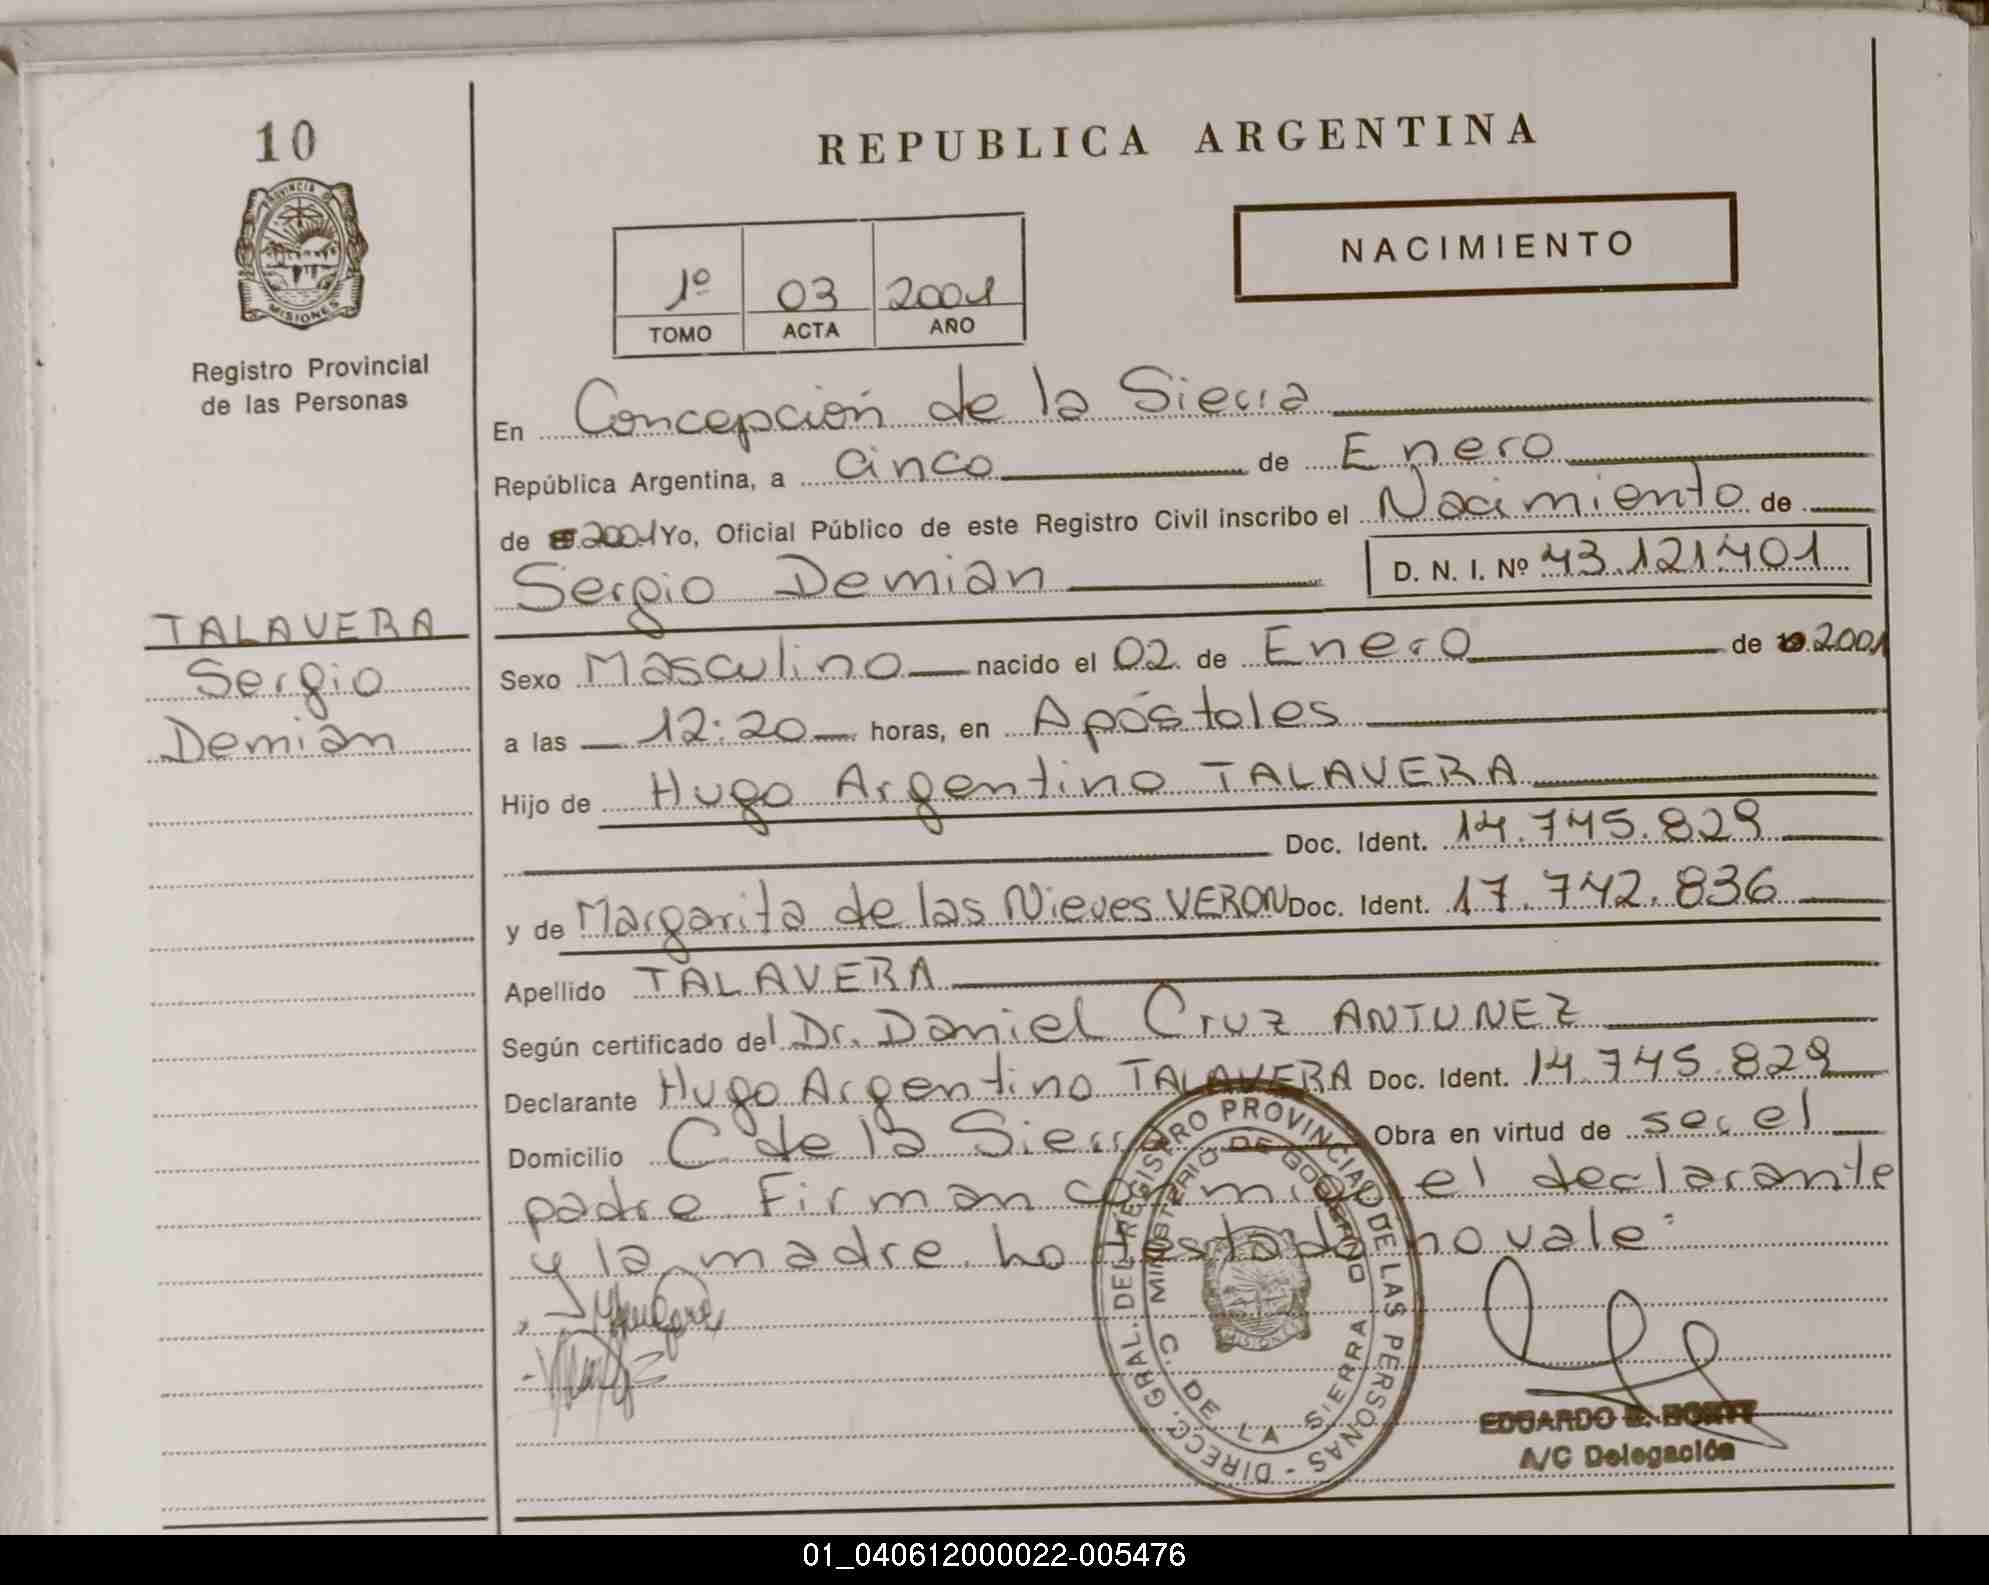 10
PROVINCIA DE
MISIONES
Registro Provincial
de las Personas
TALAVERA
Sergio
Demian
REPUBLICA ARGENTINA
NACIMIENTO
1º 03 2001
TOMO ACTA AÑO
En Concepción de la Sierra
República Argentina, a cinco de Enero
de 2001 Yo, Oficial Público de este Registro Civil inscribo el Nacimiento de
Sergio Demian D. N. I. Nº 43.121.401
Sexo Masculino nacido el 02 de Enero de 2001
a las 12:20 horas, en Apóstoles
Hijo de Hugo Argentino TALAVERA
Doc. Ident. 14.745.829
y de Margarita de las Nieves VERON Doc. Ident. 17.742.836
Apellido TALAVERA
Según certificado del Dr. Daniel Cruz ANTUNEZ
Declarante Hugo Argentino TALAVERA Doc. Ident. 14.745.829
Domicilio C de la Sierra Obra en virtud de ser el
padre Firman conmigo el declarante
y la madre. ho testado no vale:
DIRECC. GRAL. DEL REGISTRO PROVINCIAL DE LAS PERSONAS -
MINISTERIO DE GOBIERNO
C. DE LA SIERRA
MISIONES
EDUARDO
A/C Delegación
01_040612000022-005476